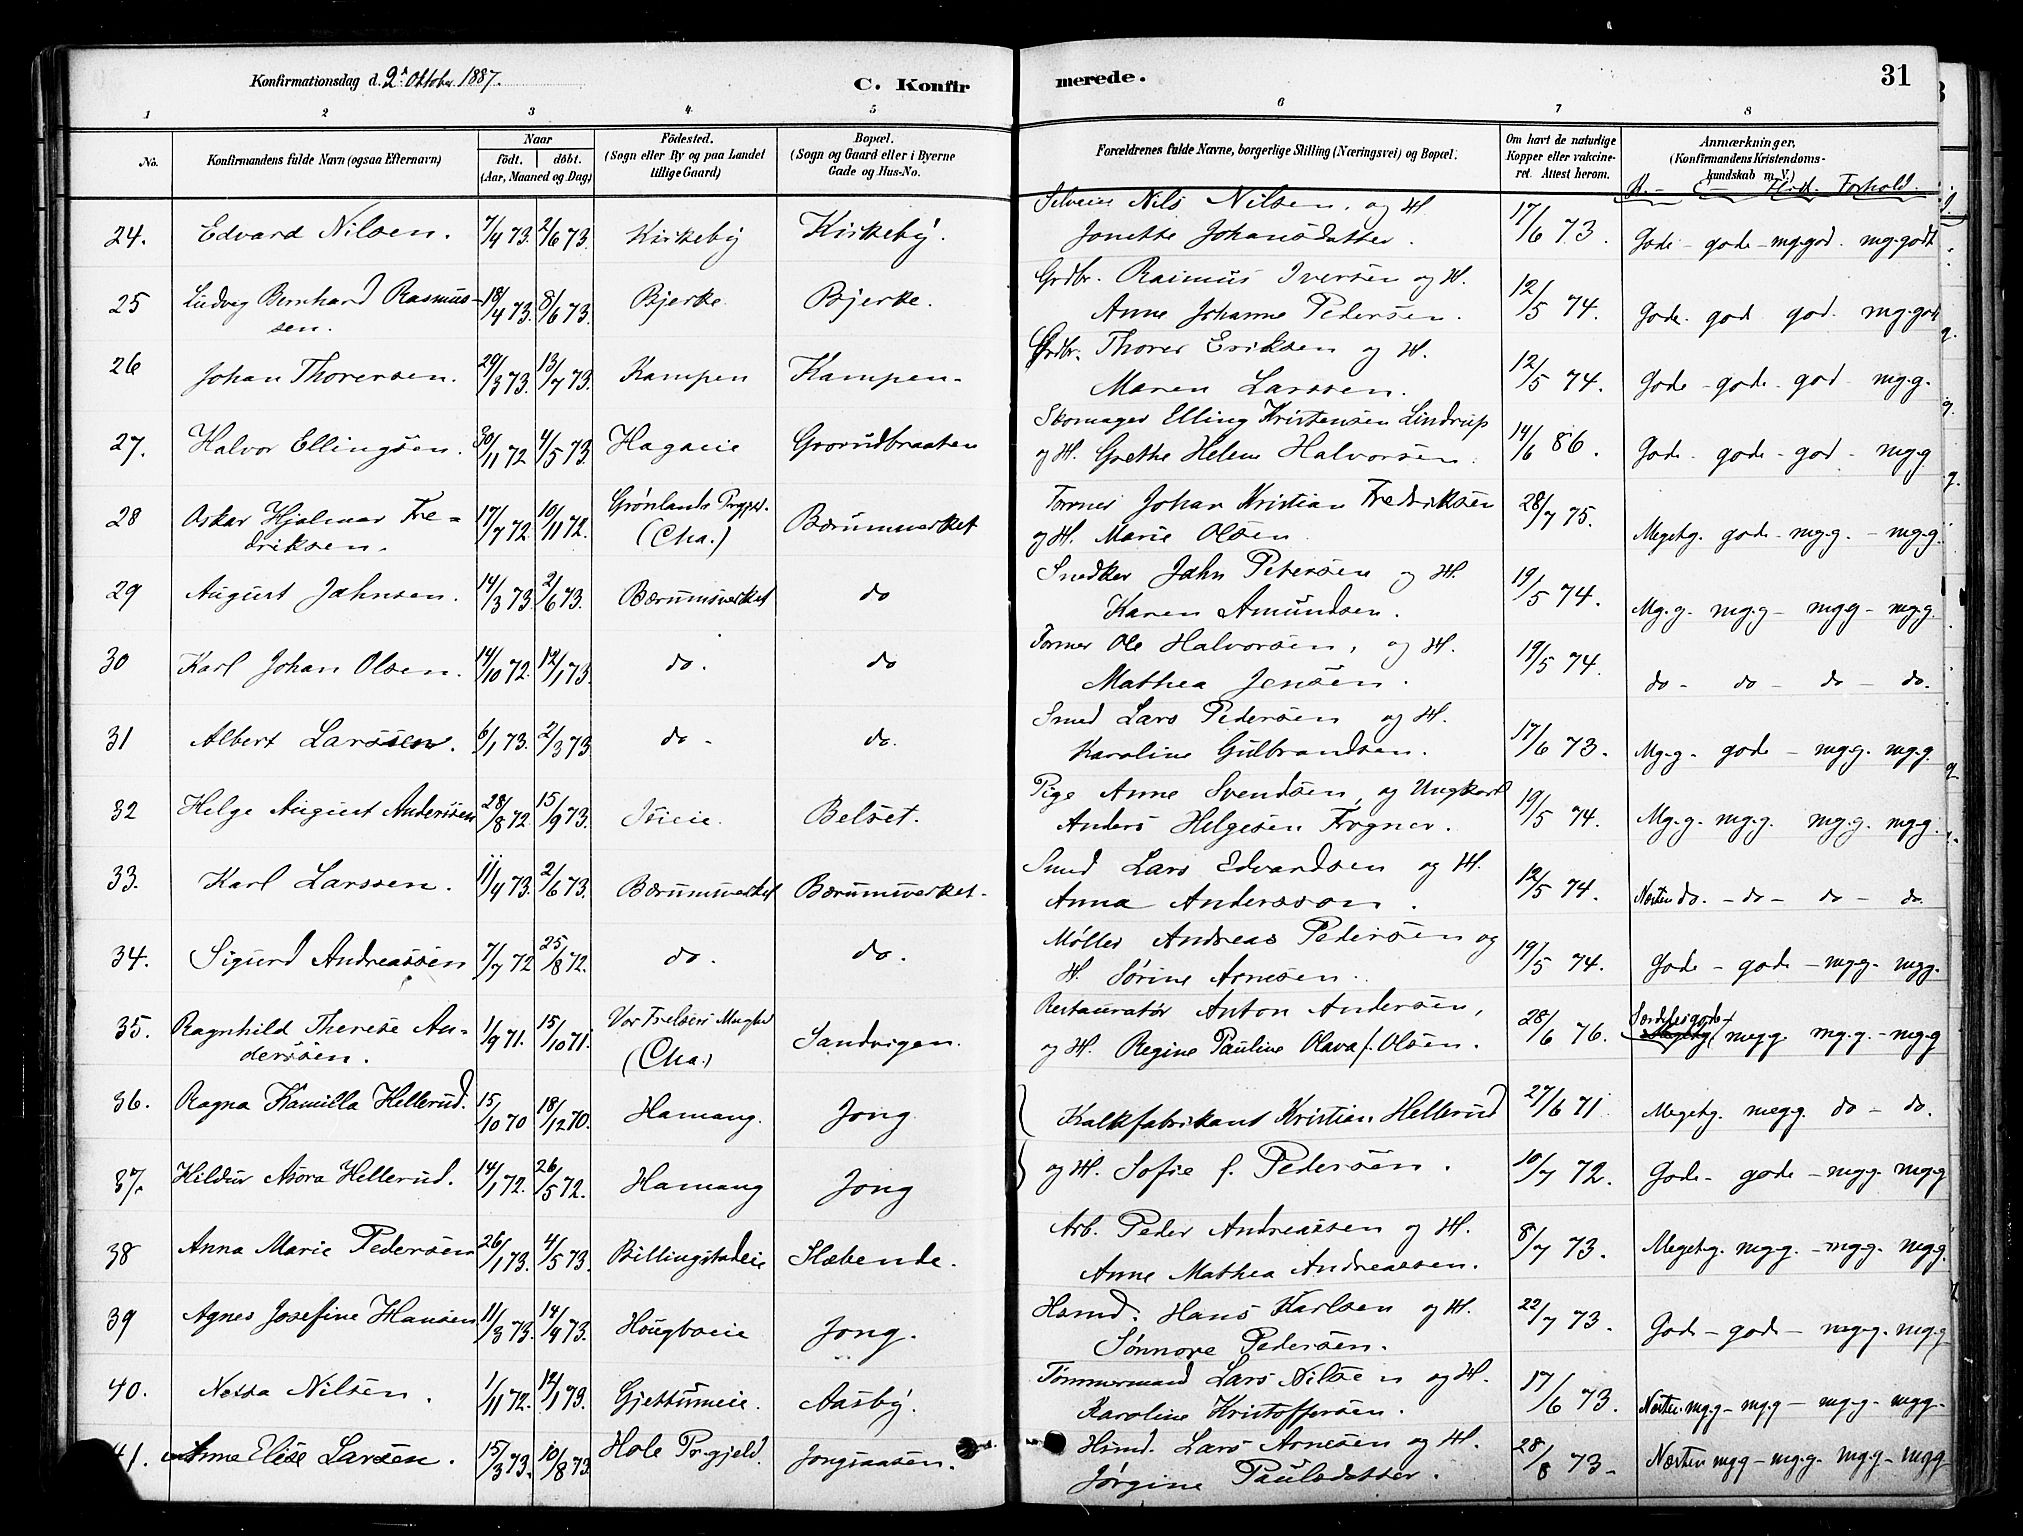 Konfirmationsdag d. 2den Oktober 1887.
C. Konfirmerede.
31
1 2 3 4 5 6 7 8
No.
Konfirmandens fulde Navn (ogsaa Efternavn)
Naar
födt. döbt.
(Aar, Maaned og Dag)
Födested.
(Sogn eller By og paa Landet
tillige Gaard)
Bopæl.
(Sogn og Gaard eller i Byerne
Gade og Hus-No.
Forældrenes fulde Navne, borgerlige Stilling (Næringsvei) og Bopæl.
Om havt de naturlige
Kopper eller vakcine-
ret. Attest herom.
Anmærkninger,
(Konfirmandens Kristendoms-
kundskab m. V.)
Flid. Forhold.
24. Edvard Nilsen. 7/4 73. 2/6 73. Kirkeby Kirkeby. Nils Nilsen, og H. 17/6 73. Gode - gode - mg.god. mg.godt
Jonette Johansdatter.
25 Ludvig Bernhard Rasmus- 18/4 73. 8/6 73. Bjerke Bjerke. Grdbr. Rasmus Iversen og H. 12/5 74. Gode. god god. mg.godt
sen. Anne Johanne Pedersen.
26 Johan Thorersen. 29/3 73. 13/7 73. Kampen Kampen. Grdbr. Thorer Eriksen og H. 12/5 74. Gode - gode - god - mg.g.
Maren Larssen.
27. Halvor Ellingsen. 30/11 72 4/5 73. Hagaeie Grorudbraaten Skomager Elling Kristensen Lindrup 14/6 86. Gode - gode - god - mg.g
og H. Grethe Helene Halvorsen.
28 Oskar Hjalmar Fre- 17/7 72. 10/11 72. Grønlands Prgjld. Bærumsverket Former Johan Kristian Fredriksen 28/7 75. Megetg. gode - mg.g. - mg.g.
driksen. (Cha.) og H. Marie Olsen.
29 August Jahnsen. 14/3 73. 2/6 73. Bærumsverket do Snedker Jahn Petersen og H. 19/5 74. Mg.g. mg.g - mg.g - mg.g.
Karen Amundsen.
30 Karl Johan Olsen. 14/10 72. 12/1 73. do. do Former Ole Halvorsen, og H. 19/5 74. do - do - do - do.
Mathea Jensen.
31 Albert Larssen. 6/1 73. 2/3 73 do - do. Smed Lars Pedersen og H. 17/6 73. Mg.g. gode - mg.g. mg.g.
Karoline Gulbrandsen.
32 Helge August Anderssen 28/8 72. 15/9 73. Belset. Pige Anne Svendsen, og Ungkarl 19/5 74. Mg.g. mg.g. mg.g. mg.g.
Anders Helgesen Frogner.
33. Karl Larssen. 11/4 73. 2/6 73. Bærumsverket Bærumsverket. Smed Lars Edvardsen og H. 12/5 74. Næsten do. - do - do - do.
Anna Andersson.
34. Sigurd Andreassen 7/7 72 25/8 72. do. do. Møller Andreas Pedersen og 19/5 74. Gode - gode - mg.g. mg.g.
H. Sørine Arnesen.
35. Ragnhild Therese An- 1/9 71. 15/10 71. Vor Frelsers Mnghd Sandvigen. Restauratør Anton Andersen, 28/6 76. Særdeles gode mg.g. mg.g. - mg.g
derssen. (Cha.) og H. Regine Pauline Olava f. Olsen.
36. Ragna Kamilla Hellerud. 15/10 70 18/12 70. Hamang. Jong Kalkfabrikant Kristian Hellerud 27/6 71. Megetg. meg.g. do - do.
37. Hildur Asora Hellerud. 14/1 72. 26/5 72. Hamang Jong og H. Sofie f. Pedersen. 10/7 72. Gode - gode - mg.g. mg.g
38 Anna Marie Pedersen 26/1 73. 4/5 73. Billingstadeie Slæbende. Arb. Peder Andreassen og H. 8/7 73. Megetg. mg.g. - mg.g. mg.g.
Anne Mathea Andreassen.
39 Agnes Josefine Hansen 11/3 73. 14/9 73. Hougboeie Jong. Husmd. Hans Karlsen og H. 22/7 73. Gode - gode - mg.g. mg.g
Sønnove Pedersen.
40. Nessa Nilsen. 1/11 72. 12/1 73. Gjettumeie. Aasby. Tømmermand Lars Nilsen og H. 17/6 73. Næsten mg.g - mg.g - mg.g. mg.g.
Karoline Kristoffersen.
41. Anne Elise Larsen. 15/3 73. 10/8 73 Hole Prgjeld. Jongsaasen. Husmd. Lars Arnesen og H. 28/8 73. Næsten mg.g - mg.g. mg.g - mg.g
Jørgine Paulsdatter.